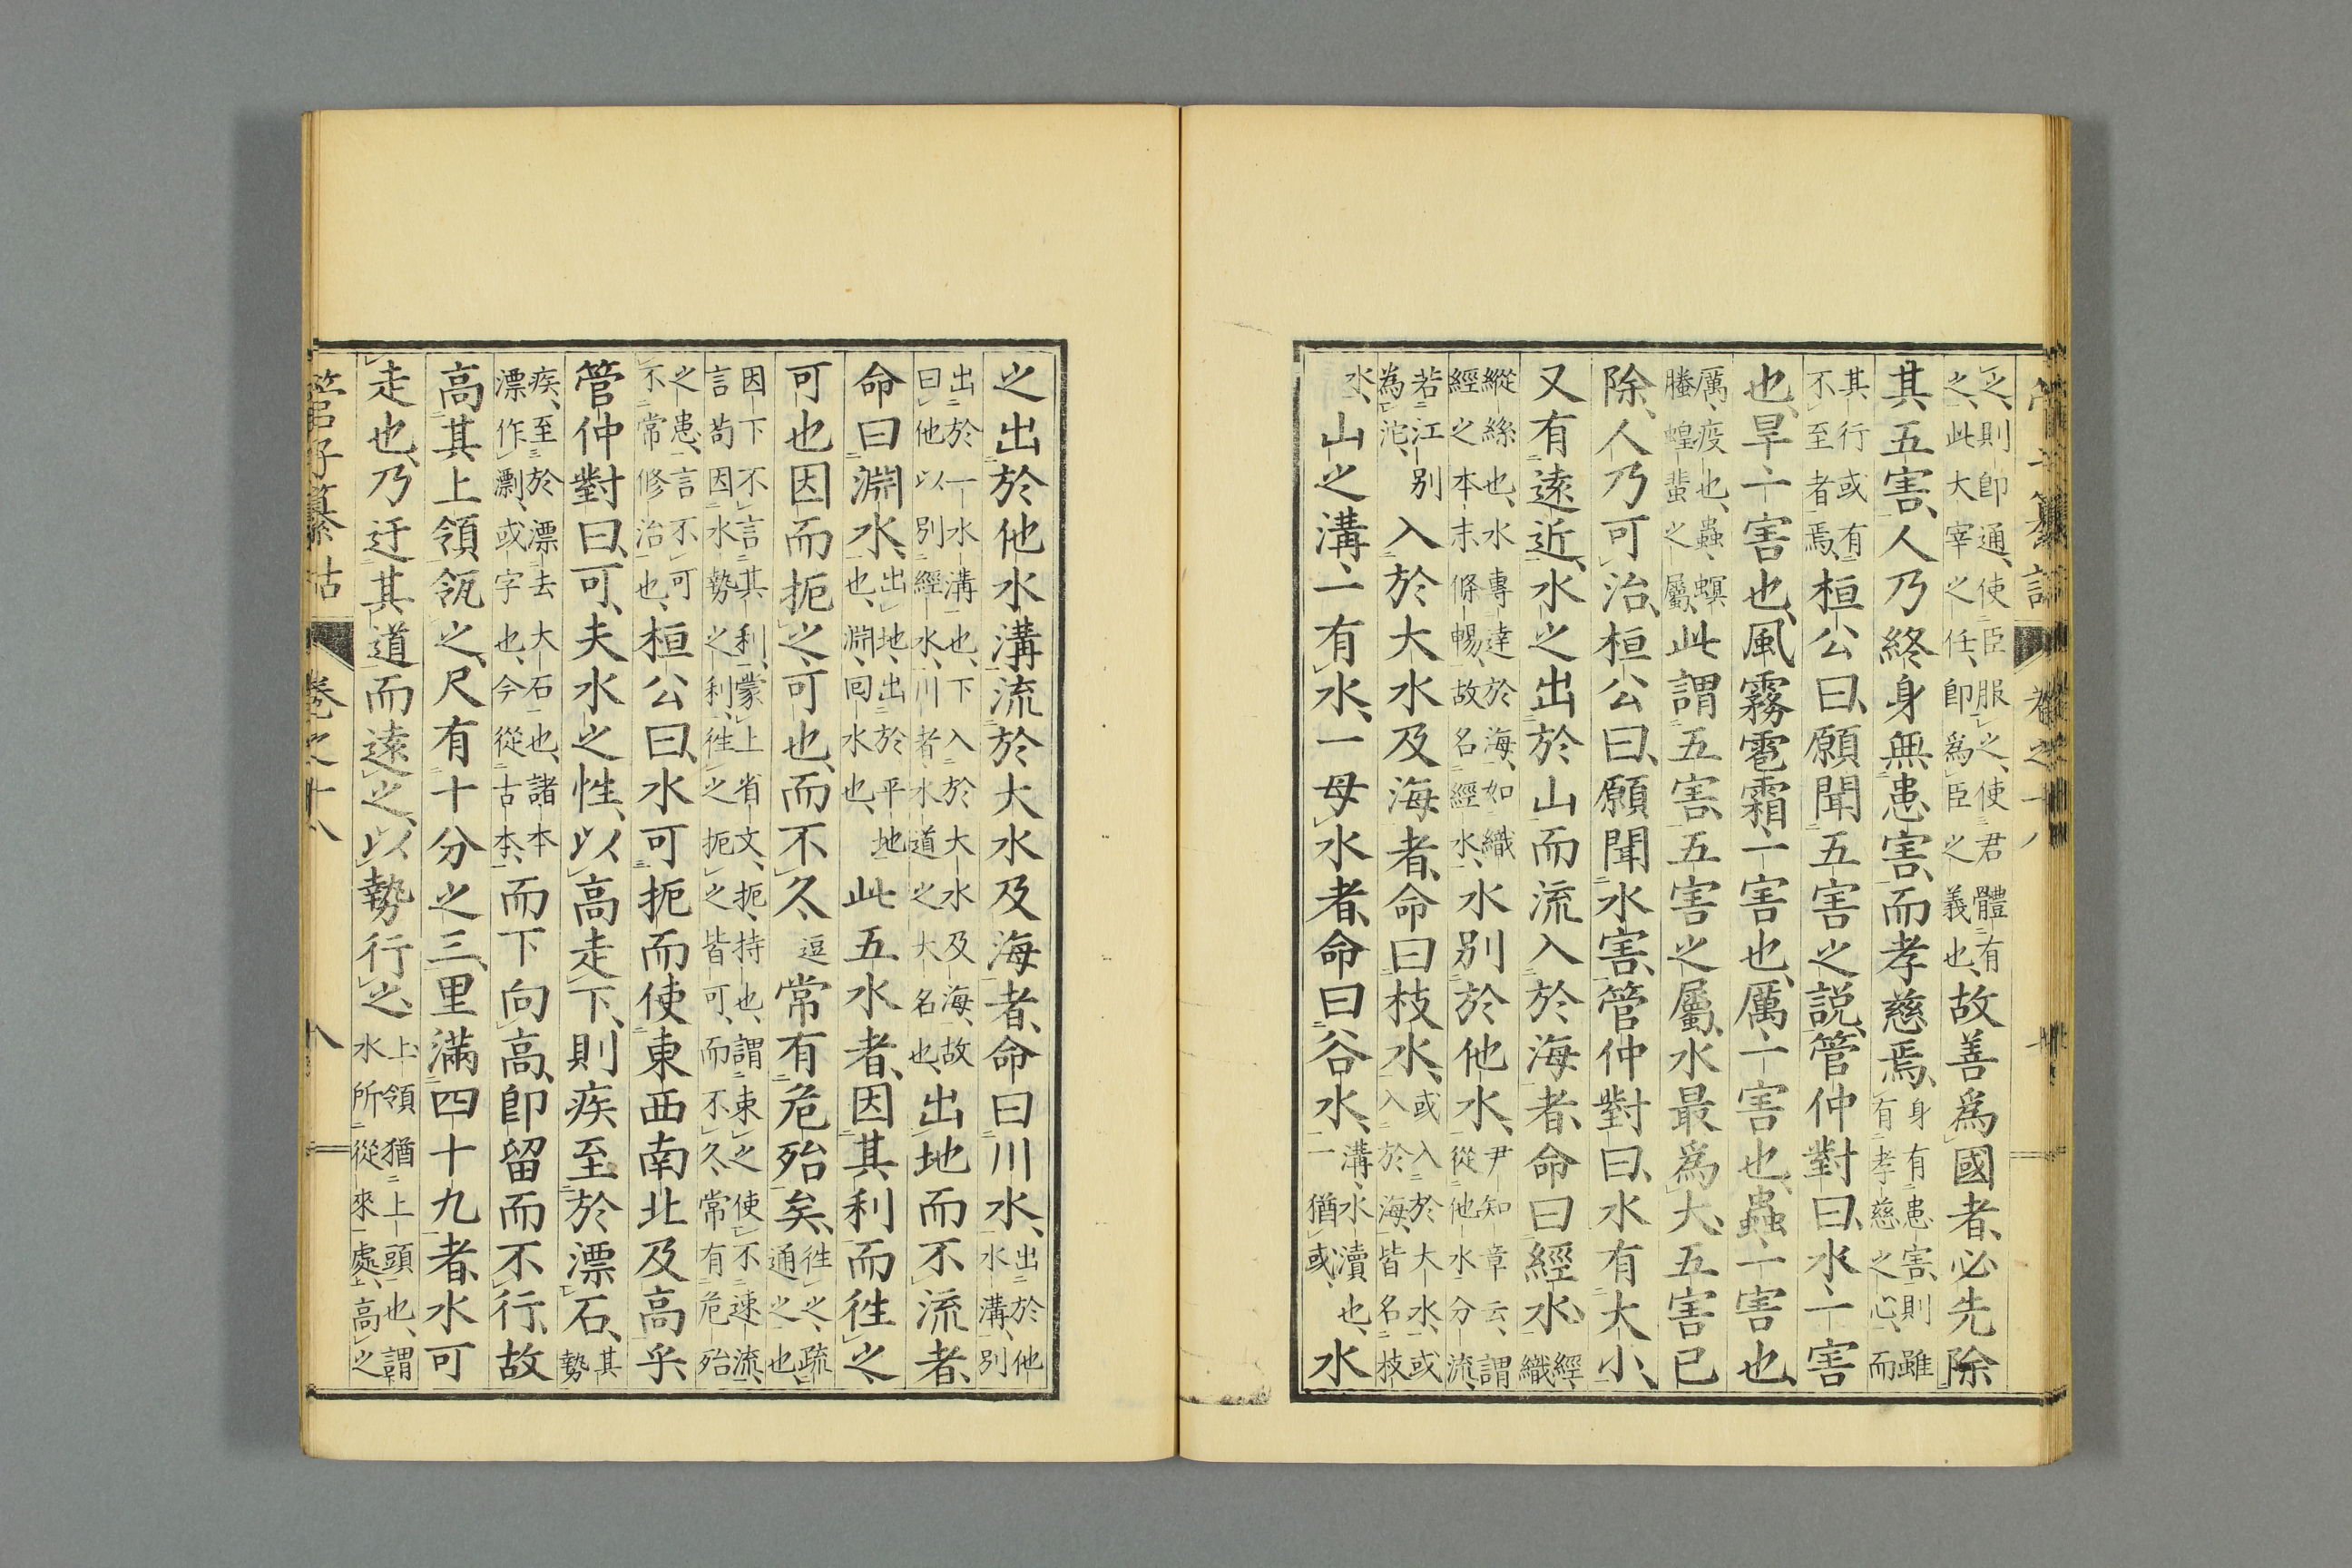 管子纂詁 卷之十八
之、則即通、使臣服之、使君體有
之、此大宰之任、即爲臣之義也、故善爲國者、必先除
其五害、人乃終身無患害、而孝慈焉、身有患害、則雖
有孝慈之心、而
其行或有
不至者焉、桓公曰、願聞五害之説、管仲對曰、水一害
也、旱一害也、風霧雹霜一害也、厲一害也、蟲一害也、
厲、疫也、蟲、螟
螣蝗蜚之屬、此謂五害、五害之屬、水最爲大、五害已
除、人乃可治、桓公曰、願聞水害、管仲對曰、水有大小、
又有遠近、水之出於山而流入於海者、命曰經水、經、
織
縱絲也、水專達於海、如織
經之本末條暢、故名經水、水別於他水、尹知章云、謂
從他水分流、
若江別
為沱、入於大水及海者、命曰枝水、或入於大水、或
入於海、皆名枝
水、山之溝、一有水、一毋水者、命曰谷水、溝、水瀆也、
一猶或、水
之出於他水溝、流於大水及海者、命曰川水、出於他
水溝、別
出於一水溝也、下入於大水及海、故
曰他以別經水、川者、水道之大名也、出地而不流者、
命曰淵水、出地、出於平地
也、淵、囘水也、此五水者、因其利而徃之
可也、因而扼之可也、而不久逗常有危殆矣、徃之、疏
通之也、
因下不言其利、蒙上省文、扼、持也、謂束之使不速流、
言苟因水勢之利、徃之扼之皆可、而不久常有危殆
之患、言不可
不常修治也、桓公曰、水可扼而使東西南北及高乎、
管仲對曰、可、夫水之性、以高走下、則疾至於漂石、其
勢
疾、至於漂去大石也、諸本
漂作剽、或字也、今從古本、而下向高、即留而不行、故
高其上領瓴之、尺有十分之三、里滿四十九者、水可
走也、乃迂其道而遠之、以勢行之、上領猶上頭也、謂
水所從來處、高之
管子纂詁 卷之十八 八